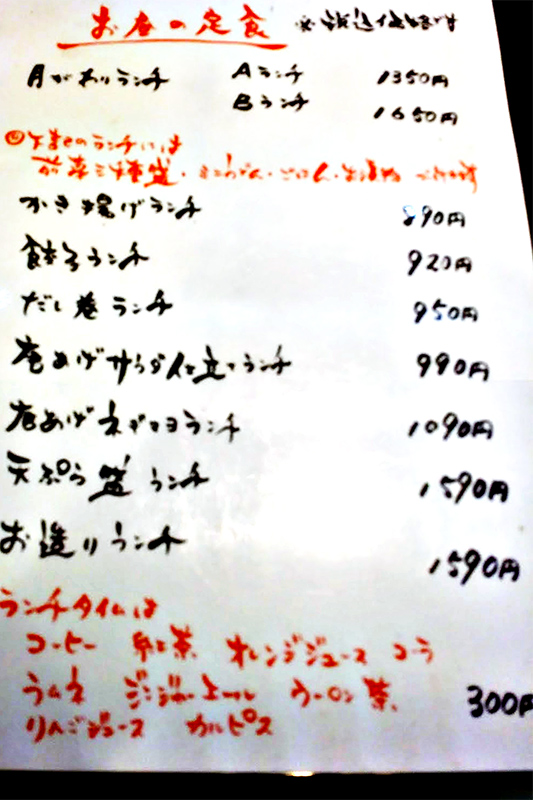 お昼の定食 ※税込価格です
月がわりランチ Aランチ 1350円
Bランチ 1650円
のランチには
前菜三種盛・ミニうどん・ごはん・お漬物
かき揚げランチ 890円
餃子ランチ 920円
だし巻ランチ 950円
唐あげサラダ仕立てランチ 990円
唐あげネギマヨランチ 1090円
天ぷら盛ランチ 1590円
お造りランチ 1590円
ランチタイムは
コーヒー 紅茶 オレンジジュース コーラ
ラムネ ジンジャーエール ウーロン茶 300円
りんごジュース カルピス